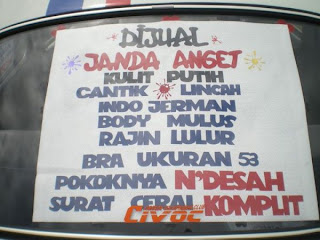 DIJUAL
JANDA ANGET
KULIT PUTIH
CANTIK LINCAH
INDO JERMAN
BODY MULUS
RAJIN LULUR
BRA UKURAN 53
POKOKNYA N'DESAH
SURAT CERAI KOMPLIT
CIVOC